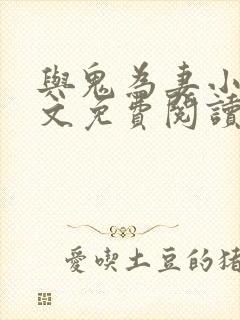 與鬼為妻小
文免費閱讀
愛喫土豆的豬